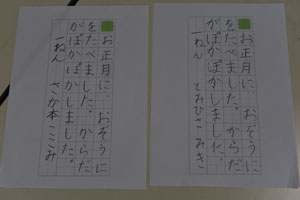 お正月に、おぞうに
をたべました。からだ
がぽかぽかしました。
一ねん みき
お正月に、おぞうに
をたべました。からだ
がぽかぽかしました。
一ねん さか本ここみ